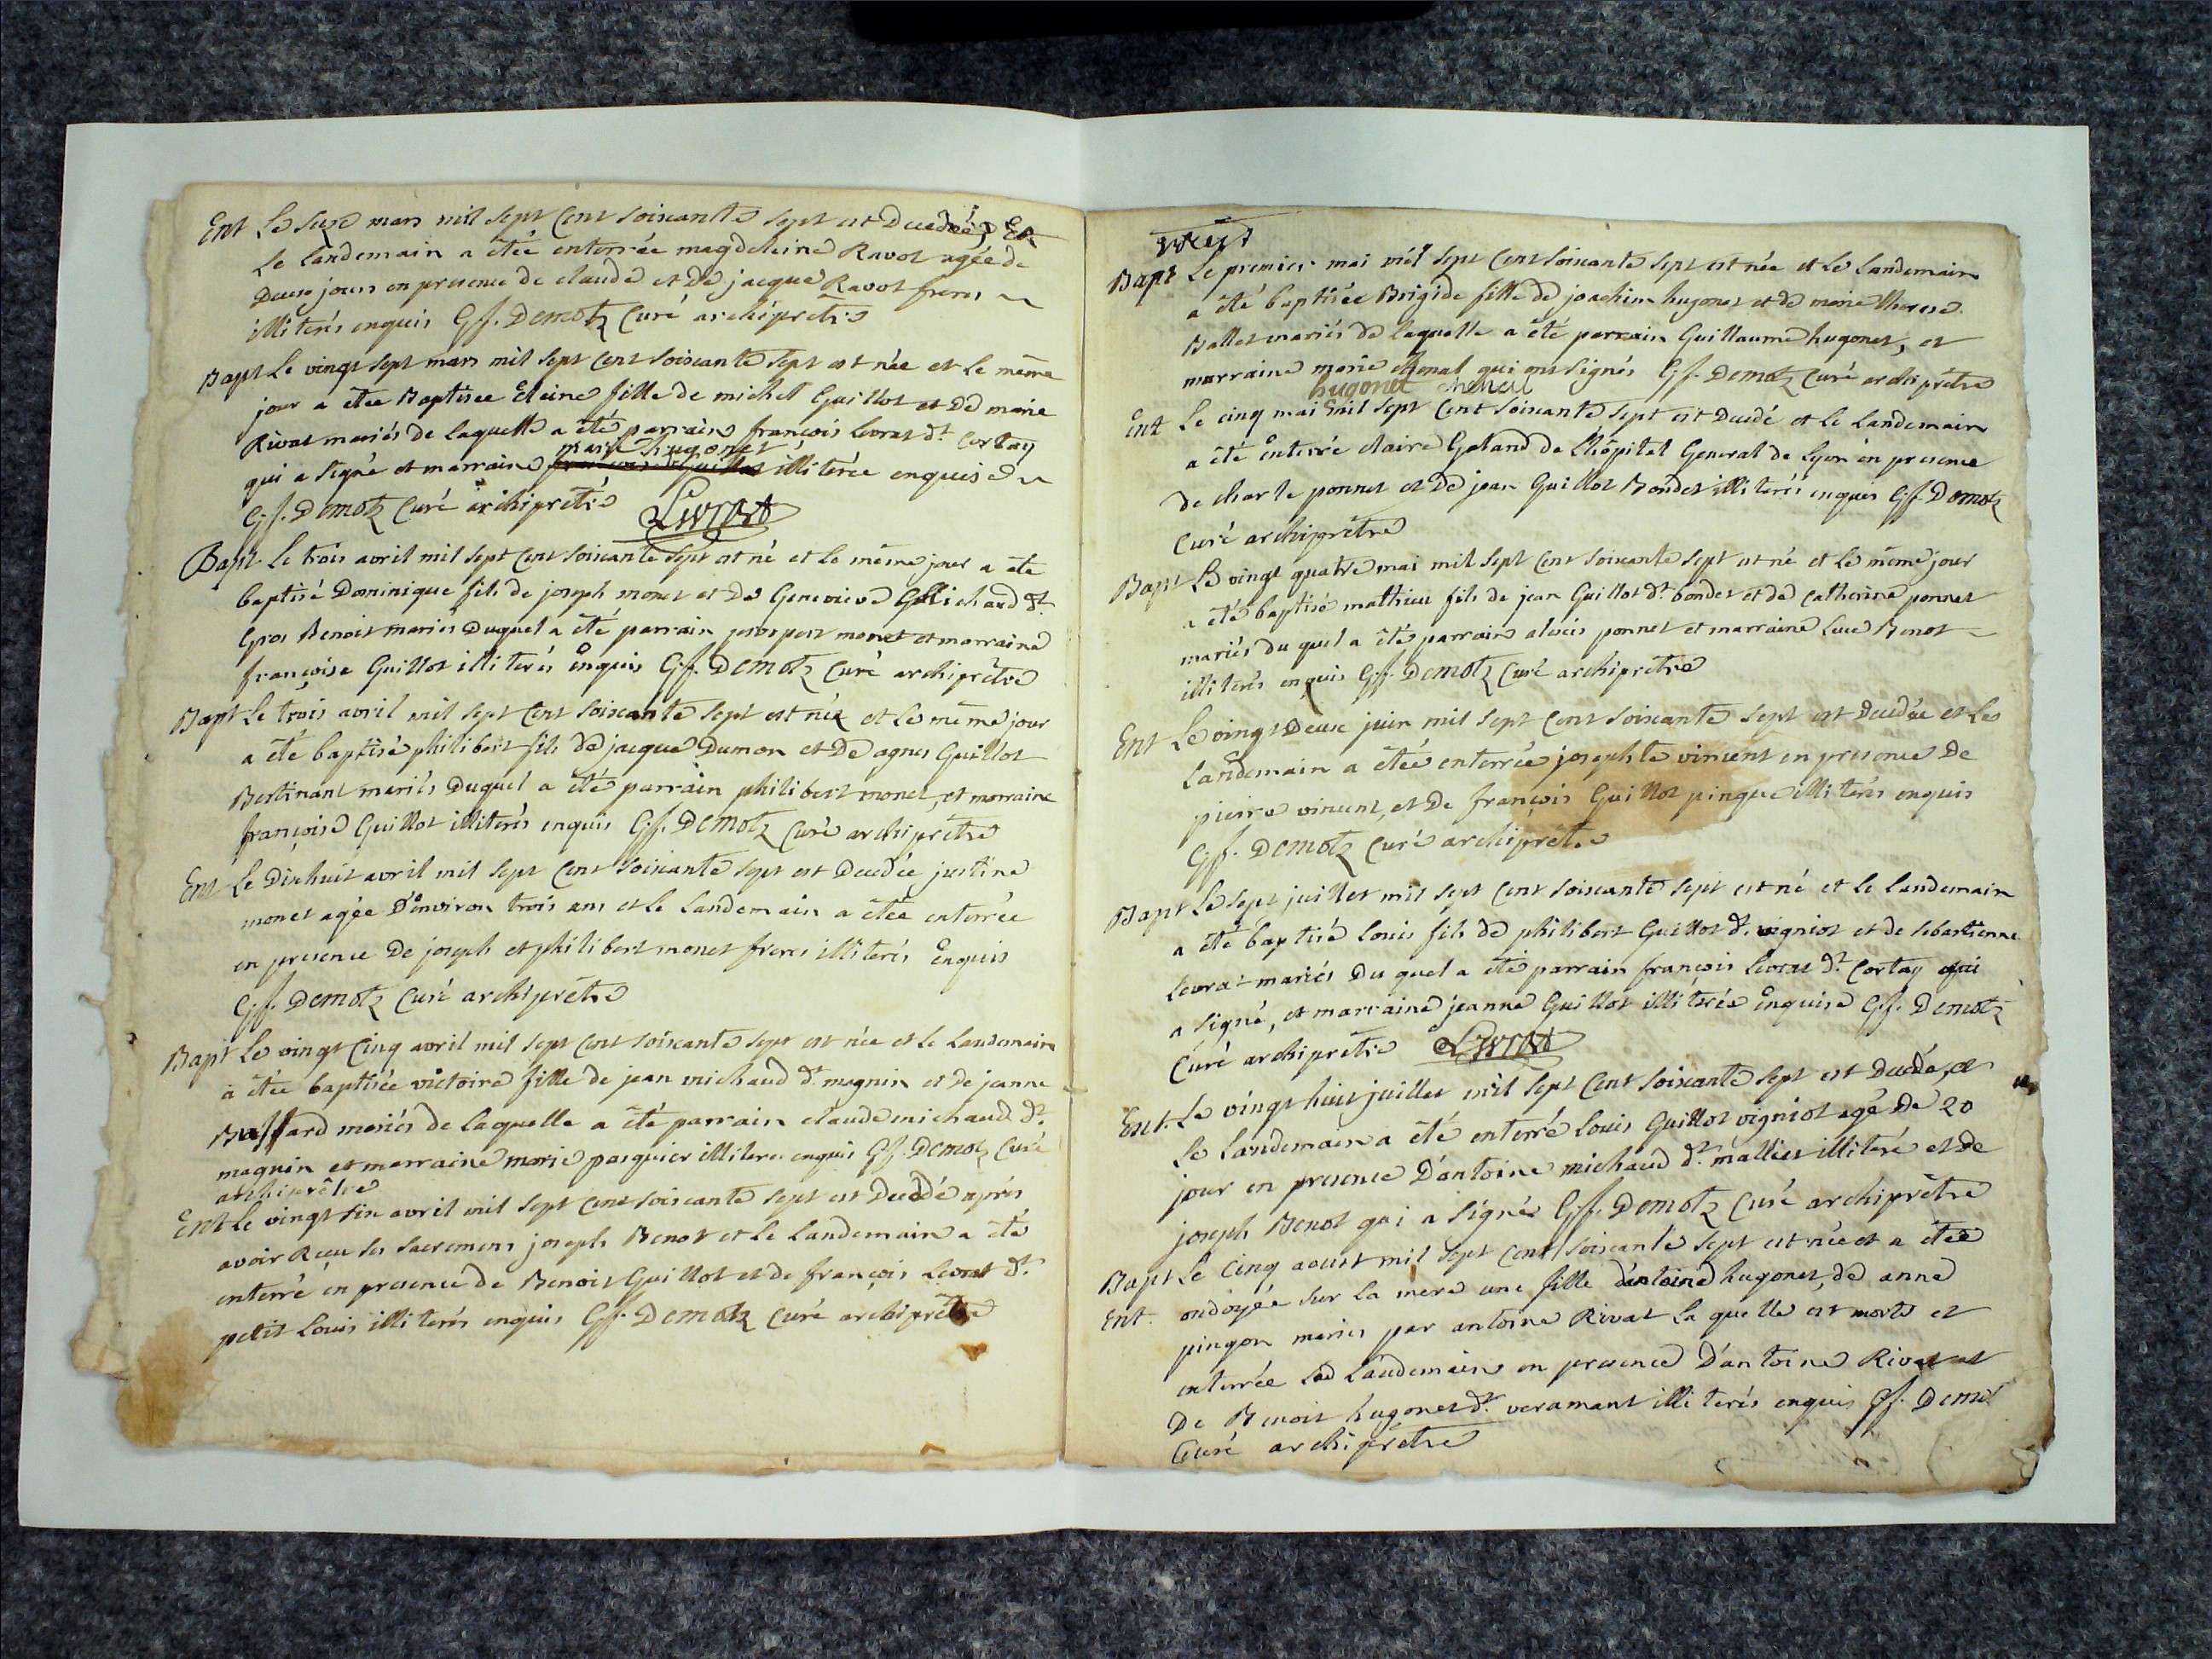 Ent Le seize mars mil sept Cent soixante sept est Decedée, Et
Le Landemain a étée enterrée magdeleine Ravot agée de
Deux jours en presence de claude et De jacque Ravot freres
illiterés enquis Gf. Demotz Curé archiprêtre
Bapt Le vingt sept mars mil sept Cent soixante sept est née et Le même
jour a étée Baptisee Eleine fille de michel Guillot et De marie
Rivat mariés de laquelle a été parrain françois Levrat dt. Cortay
marie hugonet
qui a signé et marraine illiterée enquise
Gf. Demotz Curé archiprêtre Levrat
Bapt Le trois avril mil sept Cent soixante sept est né et Le même jour a été
baptisé Dominique fils de joseph monet et De Genevieve Gallichard dt.
Gros Benoit mariés Duquel a été parrain prospert monet et marraine
françoise Guillot illiterés Enquis Gf. Demotz Curé archiprêtre
Bapt Le trois avril mil sept Cent soixante sept est né et Le même jour
a été baptisé philibert fils de jacque Dumon et De agnes Guillot
Bertinant mariés Duquel a été parrain philibert monet, et marraine
françoise Guillot illiterés enquis Gf. Demotz Curé archiprêtre
Ent Le Dixhuit avril mil sept Cent soixante sept est Decedée justine
monet agée D'environ trois ans et Le Landemain a étée enterrée
en presence De joseph et philibert monet freres illiterés Enquis
Gf. Demotz Curé archiprêtre
Bapt Le vingt Cinq avril mil sept Cent soixante sept est née et Le Landemain
a étée baptisée victoire fille de jean michaud dt. magnin et de jeanne
Bussard mariés de laquelle a été parrain claude michaud dt.
magnin et marraine marie pasquier illiteres enquis Gf. Demotz Curé
archiprêtre
Ent Le vingt six avril mil sept Cent soixante sept est Decedé aprés
avoir Reçu les sacremens joseph Benot et Le Landemain a été
enterré en presence de Benoit Guillot et de françois Levrat dt.
petit Louis illiterés enquis Gf. Demotz Curé archiprêtre
Bapt Le premier mai mil sept Cent soixante sept est née et Le Landemain
a été baptisée Brigide fille de joachim hugonet et de marie therese
Ballet mariés de laquelle a été parrain Guillaume hugonet, et
marraine marie chenal qui ont signés Gf. Demotz Curé archiprêtre
hugonet chenal
Ent Le cinq mai mil sept Cent soixante sept est Decedé et Le Landemain
a été enterré claire Galand de L'hôpital General de Lyon en presence
de charle ponnet et De jean Guillot Bondet illiterés enquis Gf. Demotz
Curé archiprêtre
Bapt Le vingt quatre mai mil sept Cent soixante sept est né et Le même jour
a été baptisé mathieu fils de jean Guillot dt. bondet et de Catherine ponnet
mariés du quel a été parrain alexis ponnet et marraine Luce Benot
illiterés enquis Gf. Demotz Curé archiprêtre
Ent Le vingt Deux juin mil sept Cent soixante sept est Decedée et Le
Landemain a étée enterrée josephte vincent en presence De
pierre vincent, et De françois Guillot pingue illiterés enquis
Gf. Demotz Curé archiprêtre
Bapt Le sept juillet mil sept Cent soixante sept est né et Le landemain
a été baptisé Louis fils de philibert Guillot dt. vigniot et de sebastienne
Levrat mariés Du quel a été parrain françois Levrat dt. Cortay qui
a signé, et marraine jeanne Guillot illiterée Enquise Gf. Demotz
Curé archiprêtre Levrat
Ent. Le vingt huit juillet mil sept Cent soixante sept est Decedé, et
Le Landemain a été enterré Louis Guillot vigniot agé De 20
jour en presence D'antoine michaud dt. mallier illiteré et de
joseph Benot qui a signé Gf. Demotz Curé archiprêtre
Bapt Le Cinq aoust mil sept Cent soixante sept est née et a étée
Ent. ondoyée sur la mere une fille d'antoine hugonet, de anne
pingon mariés par antoine Rivat La quelle est morte et
enterrée Le Landemain en presence D'antoine Rivat et
De Benoit hugonet dt. veramant illiterés enquis Gf. Demot
Curé archiprêtre